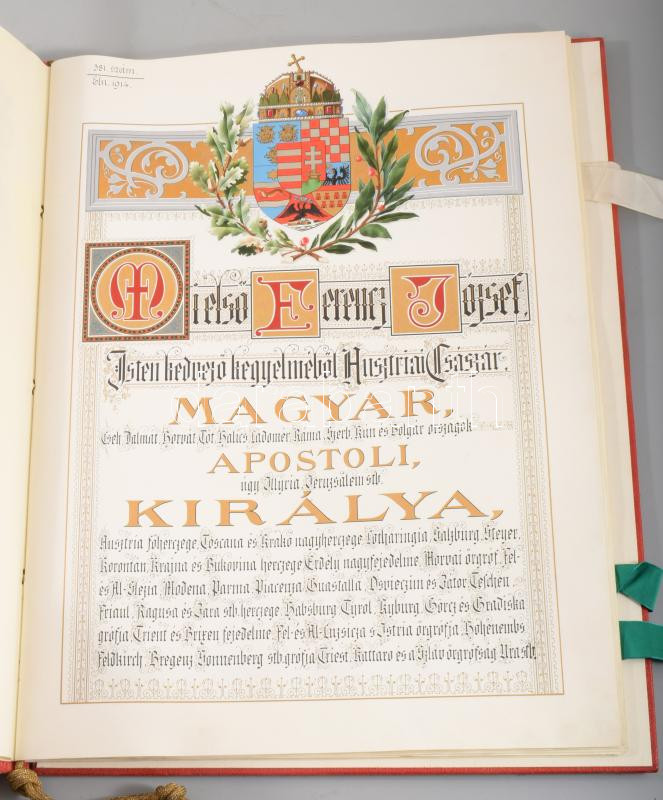 381. szám.
eln. 1914.
Mi első Ferencz József,
Isten kedvező kegyelméből Ausztriai Császár,
MAGYAR,
Cseh, Dalmát, Horvát, Tót, Halics, Ladomér, Ráma, Szerb, Kún és Bolgár országok
APOSTOLI,
úgy Illyria, Jeruzsálem stb.
KIRÁLYA,
Ausztria főherczege, Toscana és Krakó nagyherczege, Lotharingia, Salzburg, Steyer,
Korontán, Krajna és Bukovina herczege, Erdély nagyfejedelme, Morvai őrgróf, Fel-
és Al-Slezia, Modena, Parma, Piacenza, Guastalla, Osvieczim és Zator, Teschen,
Friaul, Ragusa és Zara stb. herczege, Habsburg, Tyrol, Kyburg, Görcz és Gradiska
grófja, Trient és Brixen fejedelme, Fel- és Al-Luzsicza s Istria őrgrófja, Hohenembs,
Feldkirch, Bregenz, Sonnenberg stb. grófja, Triest, Kattaro és a Szláv őrgrófság Ura stb.